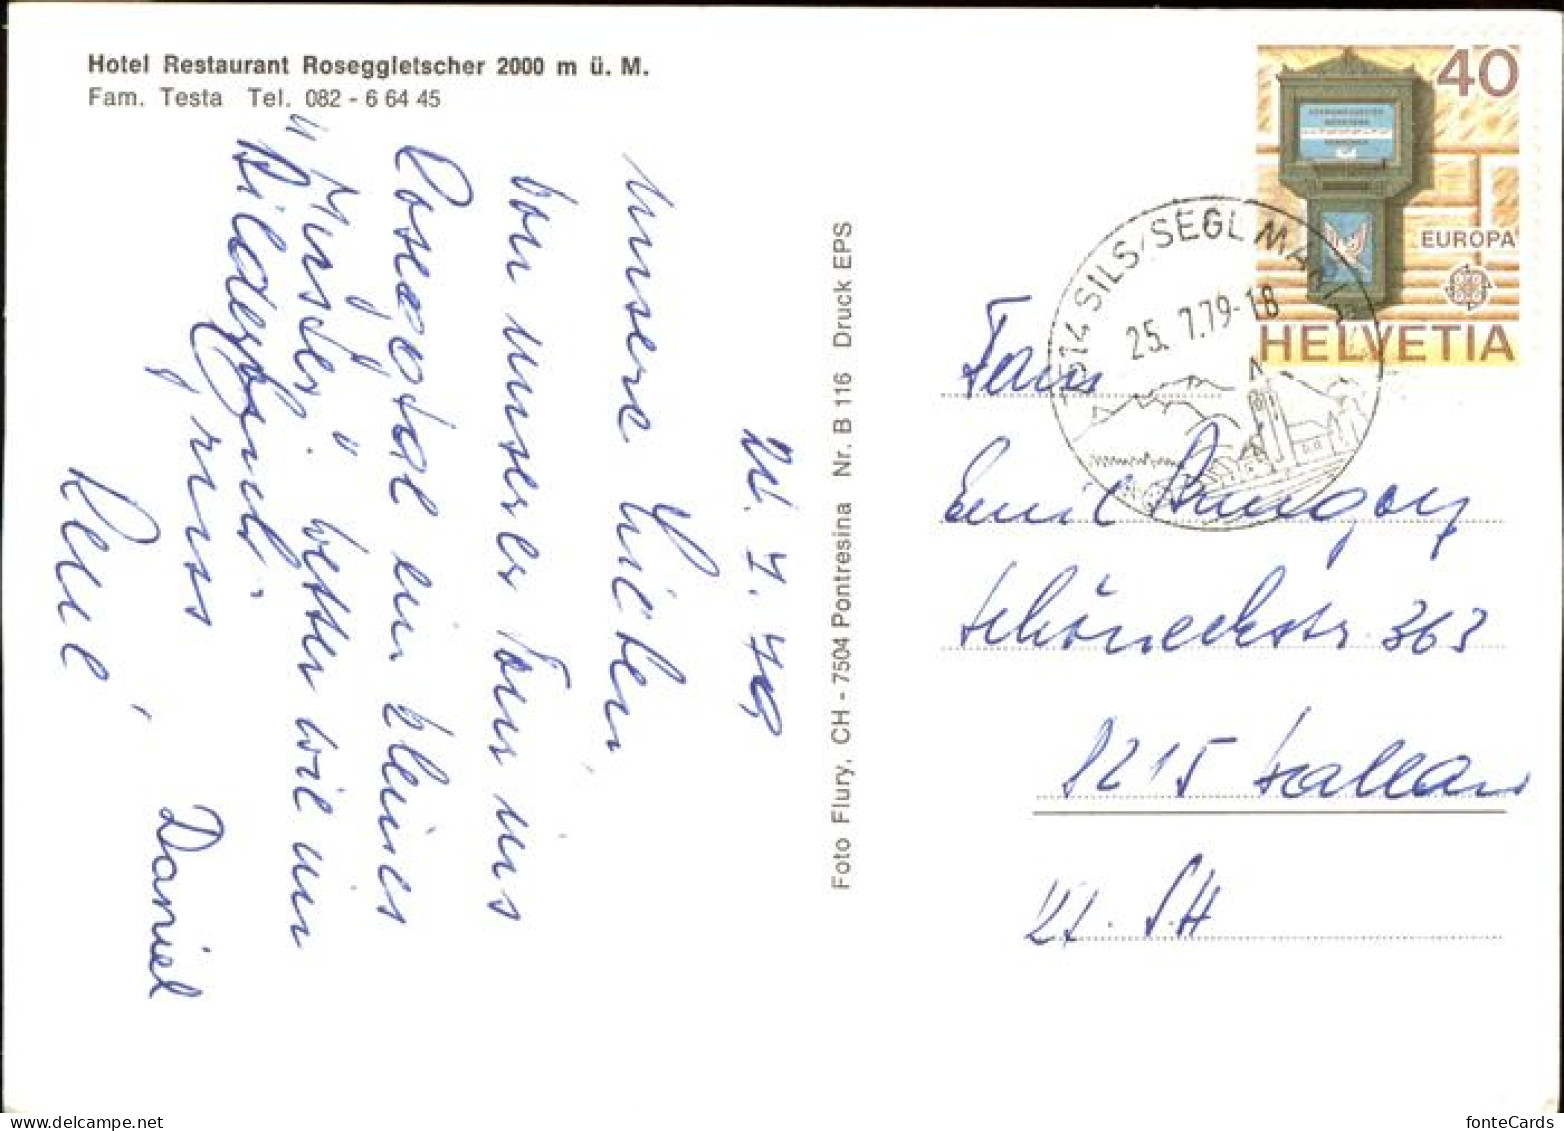 Hotel Restaurant Roseggletscher 2000 m ü. M.
Fam. Testa Tel. 082 - 6 64 45
24. 7. 79
Unsere Lieben,
Von unserer Tour ins
Roseggtal ein kleines
"Müsterli". besten wil mir
Bilder
gruss
René, Daniel
Foto Flury, CH - 7504 Pontresina Nr. B 116 Druck EPS
40
EUROPA
HELVETIA
7514 SILS/SEGL MARIA
25. 7.79-18
Fam
Emil
Schöneckstr. 363
8215 Hallau
Kt. SH
fonteCards